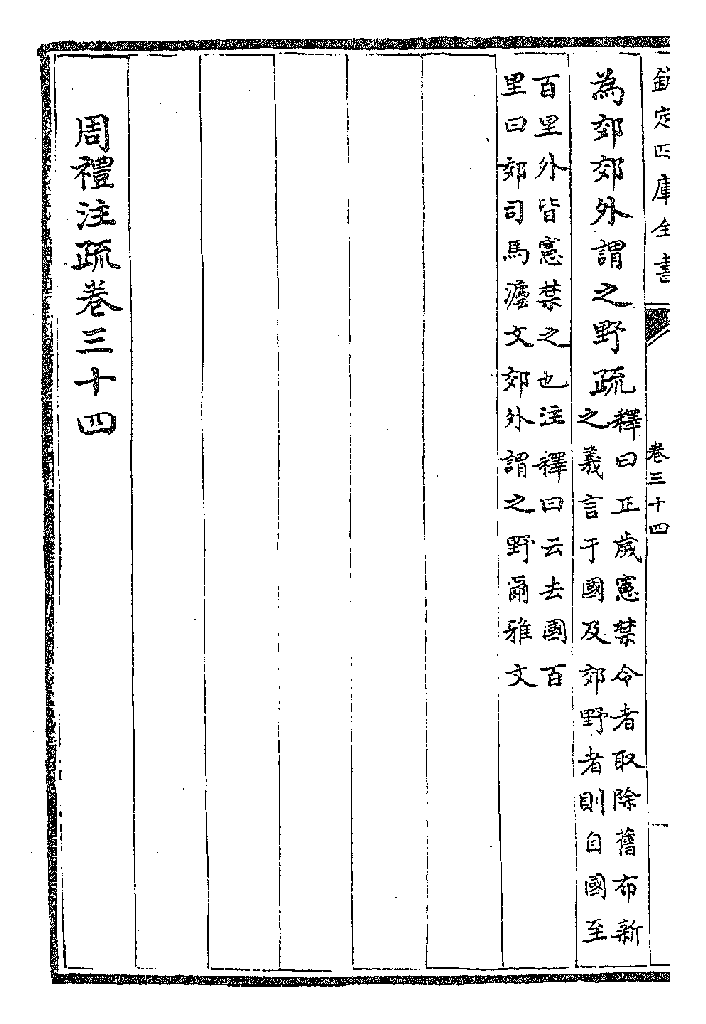 欽定四庫全書
卷三十四
為郊郊外謂之野疏
釋曰正歲憲禁令者取除舊布新
之義言于國及郊野者則自國至
百里外皆憲禁之也注釋曰云去國百
里曰郊司馬灋文郊外謂之野爾雅文
周禮注疏卷三十四